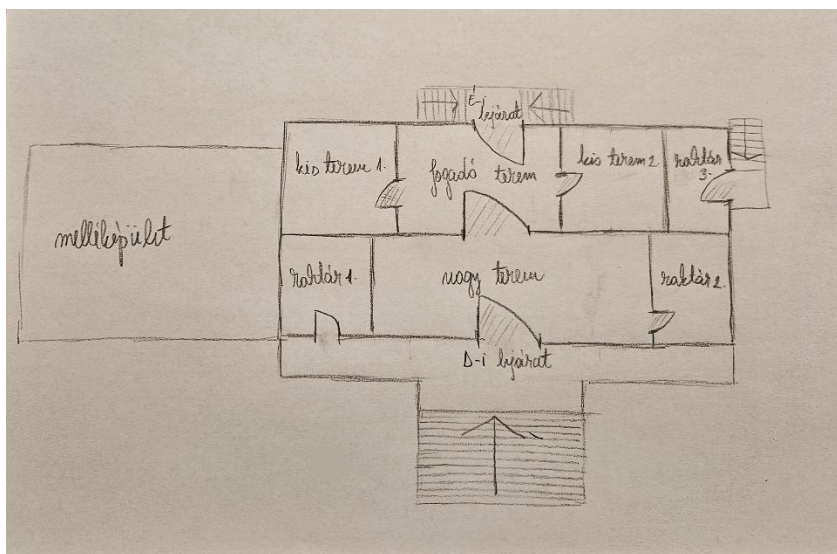 É-i
bejárat
kis terem 1.
fogadó terem
kis terem 2.
raktár
3.
melléképület
raktár 1.
nagy terem
raktár 2.
D-i bejárat